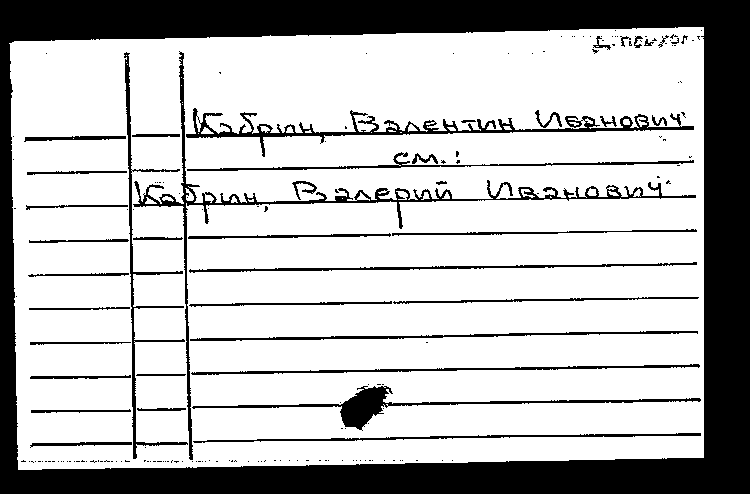 Д. психол.
Кабрин, Валентин Иванович
см.:
Кабрин, Валерий Иванович